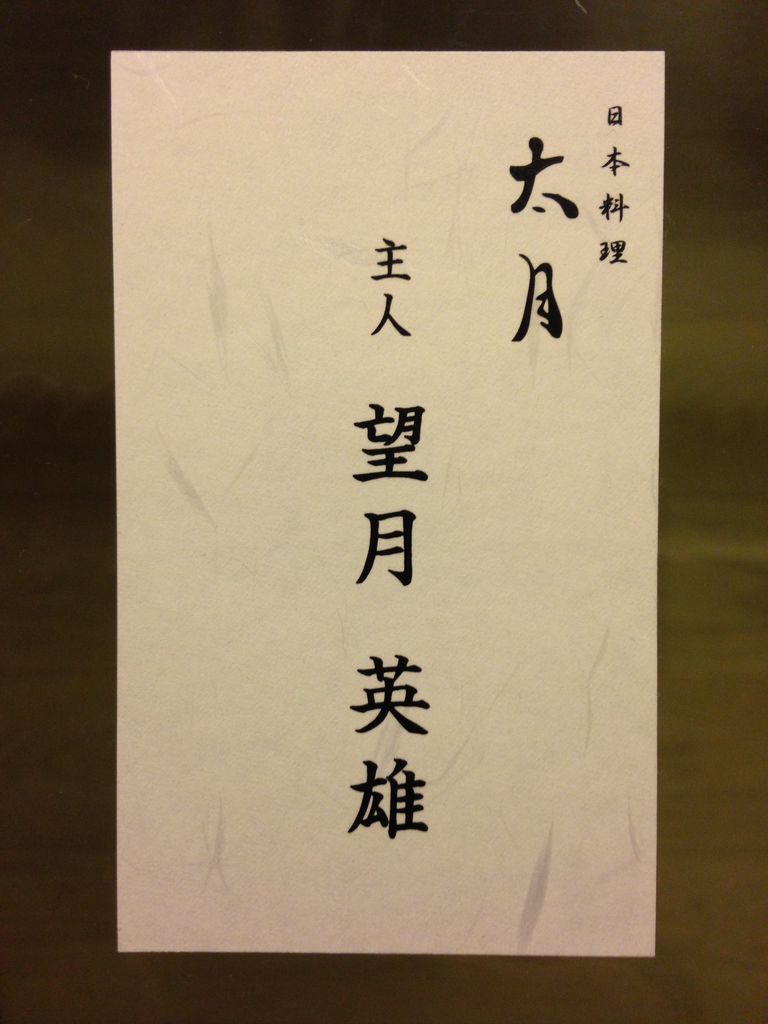 日本料理
太月
主人 望月 英雄